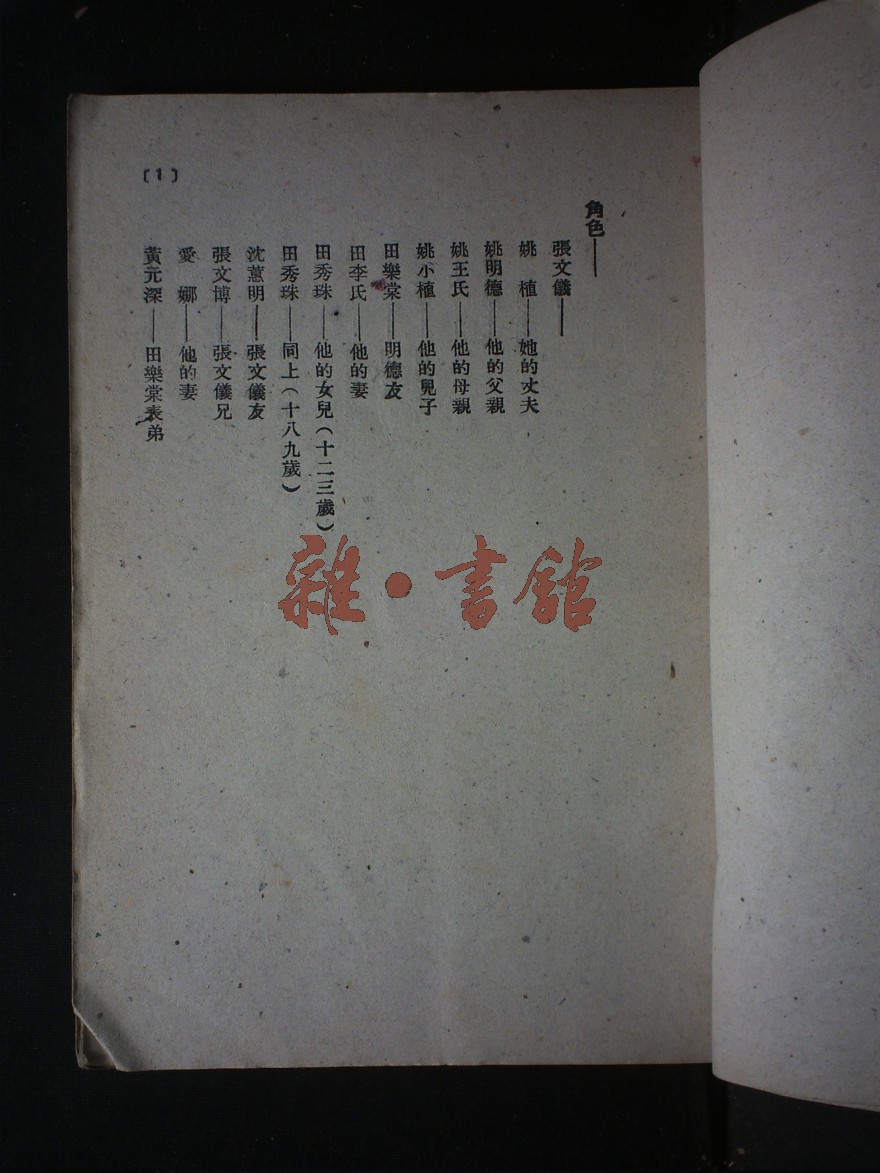 角色——
張文儀——
姚　植——她的丈夫
姚明德——他的父親
姚王氏——他的母親
姚小植——他的兒子
田樂棠——明德友
田李氏——他的妻
田秀珠——他的女兒(十二三歲)
田秀珠——同上(十八九歲)
沈蕙明——張文儀友
張文博——張文儀兄
愛　娜——他的妻
黃元深——田樂棠表弟
(1)
雜·書館